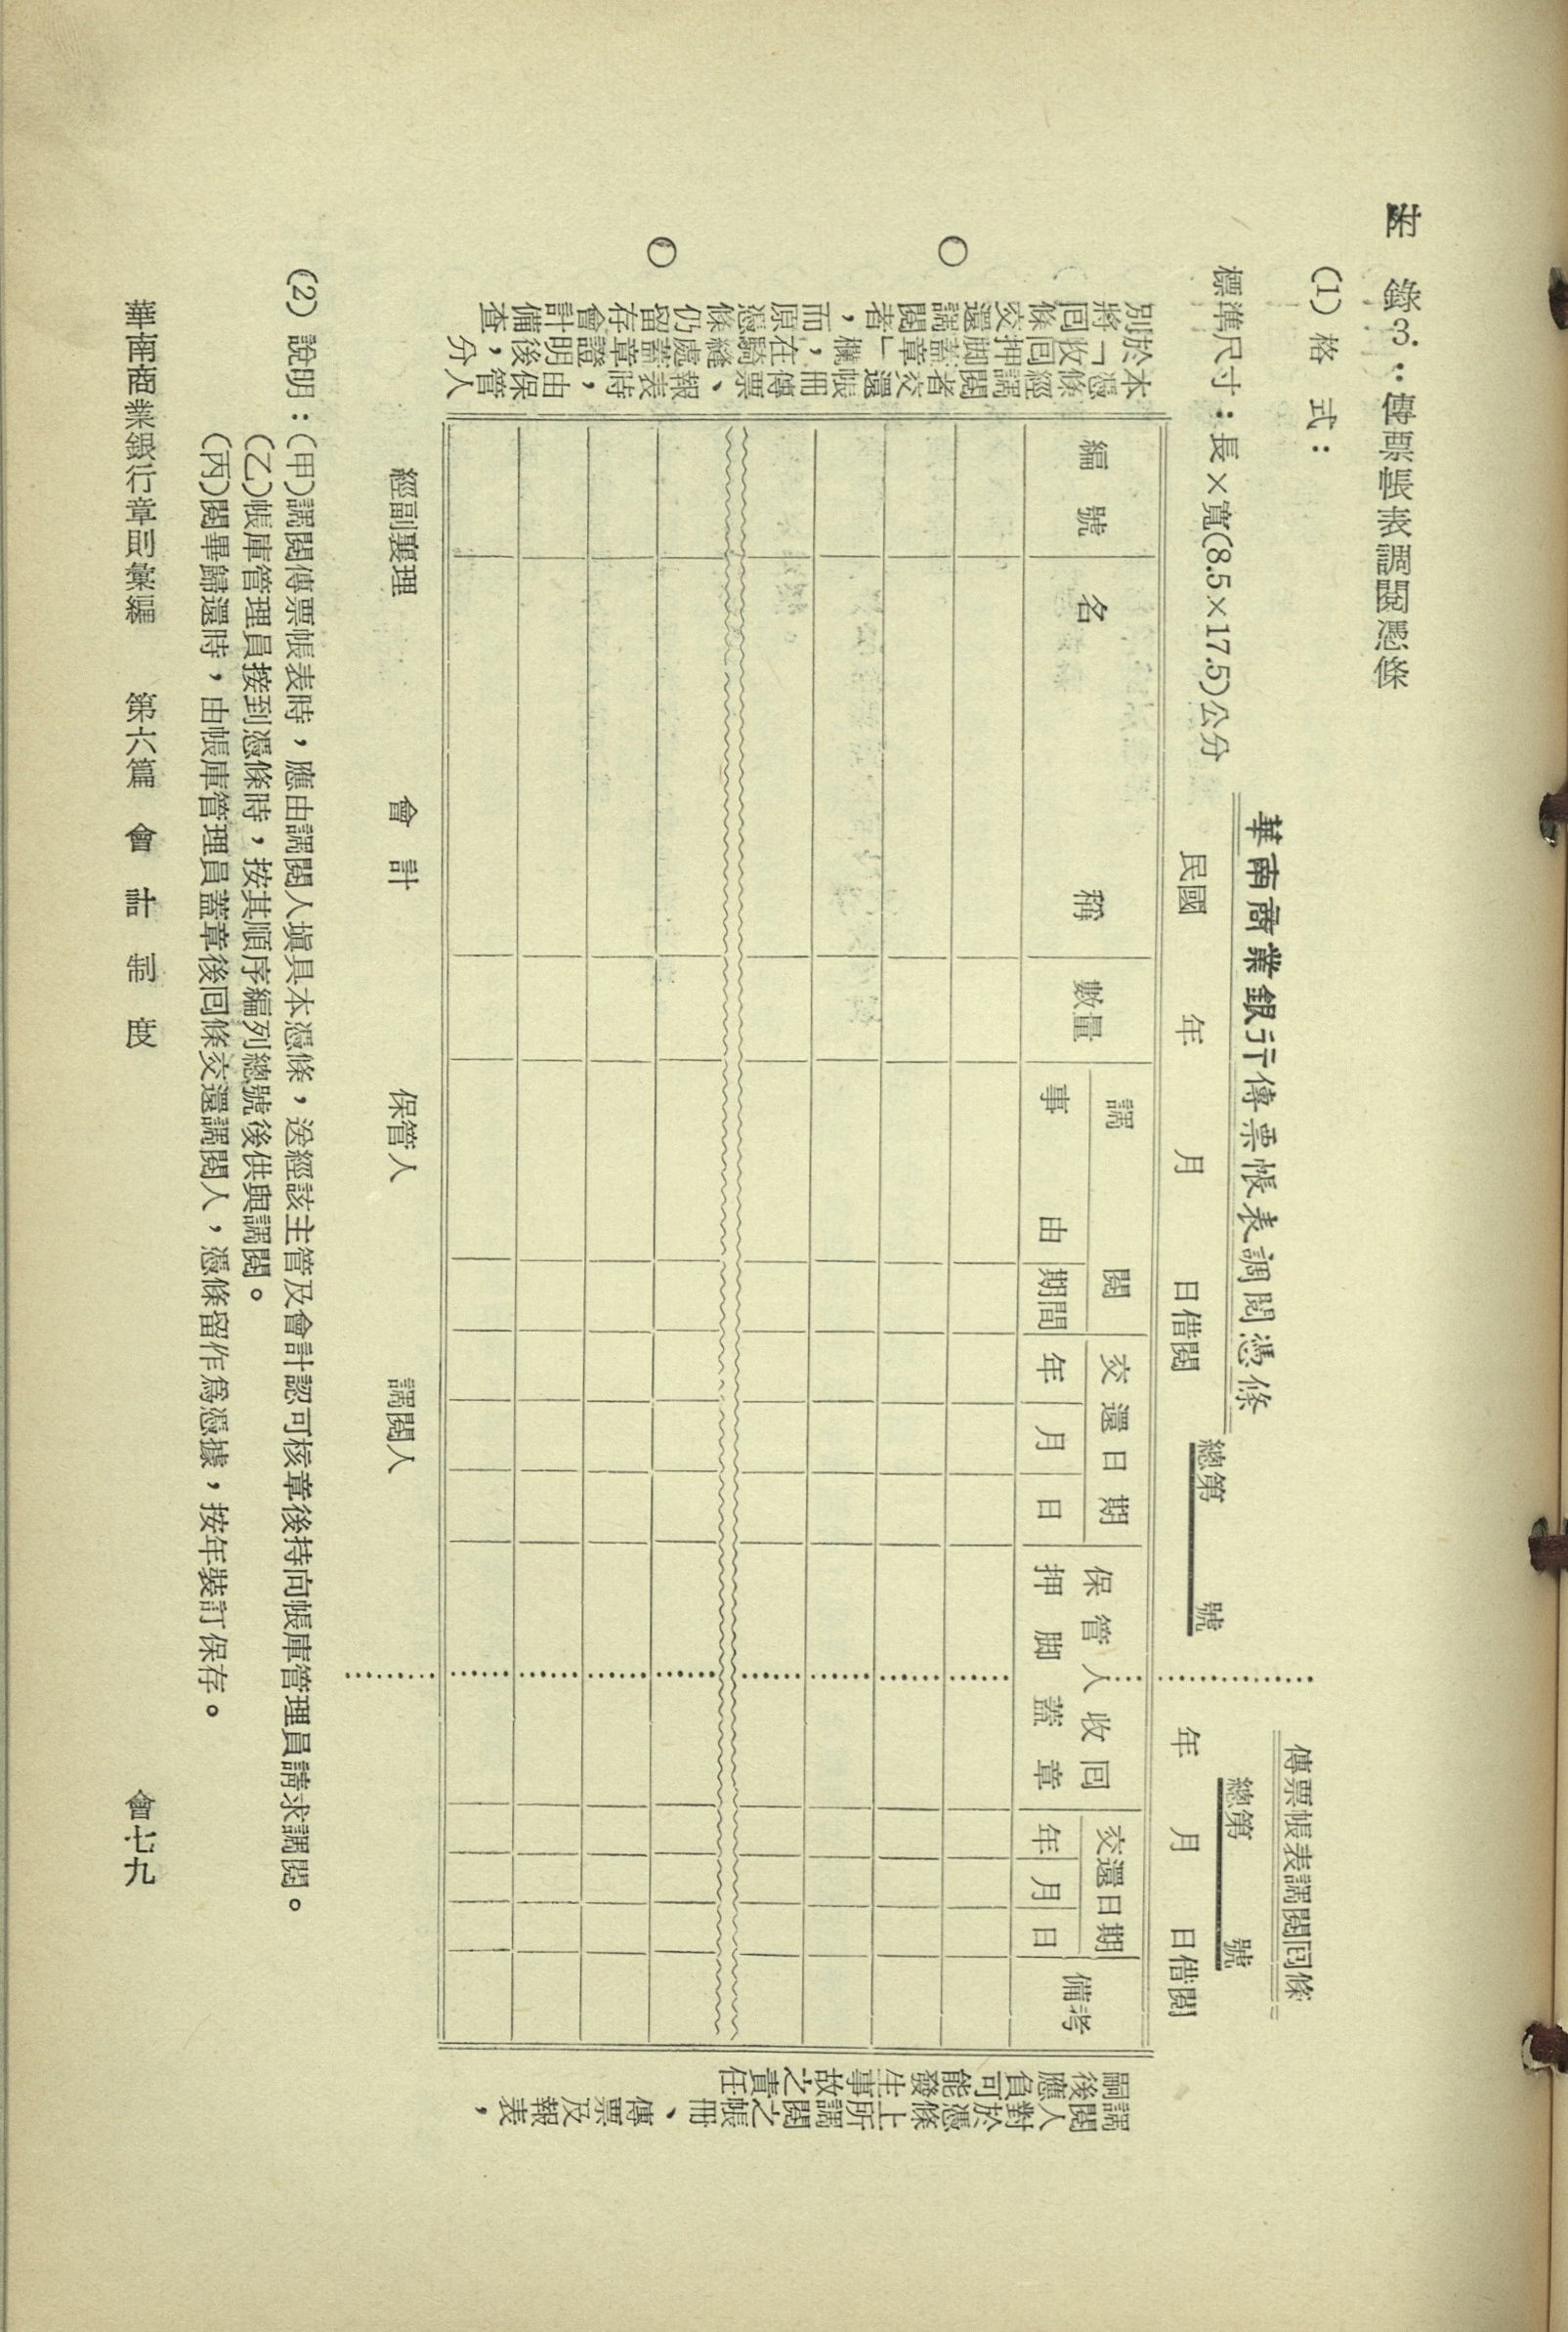 附 錄3.：傳票帳表調閱憑條
(1) 格 式：
標準尺寸：長×寬(8.5×17.5)公分
華南商業銀行傳票帳表調閱憑條
總第 號
民國 年 月 日借閱
傳票帳表調閱回條
總第 號
年 月 日借閱
本憑條經調閱者交還帳冊、傳票、報表時，由保管人
於「收回押脚蓋章」欄，在騎縫處蓋章證明後，分
別將回條交還調閱者，而原憑條仍留存會計備查
編 號
名 稱
數量
調 閱
事 由
期間
交 還 日 期
年 月 日
保 管 人 收 回
押 脚 蓋 章
交還日期
年 月 日
備考
調閱人對於憑條上所調閱之帳冊、傳票及報表，
嗣後應負可能發生事故之責任
經副襄理 會 計 保管人 調閱人
(2) 說明：(甲)調閱傳票帳表時，應由調閱人塡具本憑條，送經該主管及會計認可核章後持向帳庫管理員請求調閱。
(乙)帳庫管理員接到憑條時，按其順序編列總號後供與調閱。
(丙)閱畢歸還時，由帳庫管理員蓋章後回條交還調閱人，憑條留作爲憑據，按年裝訂保存。
華南商業銀行章則彙編 第六編 會 計 制 度 會七九